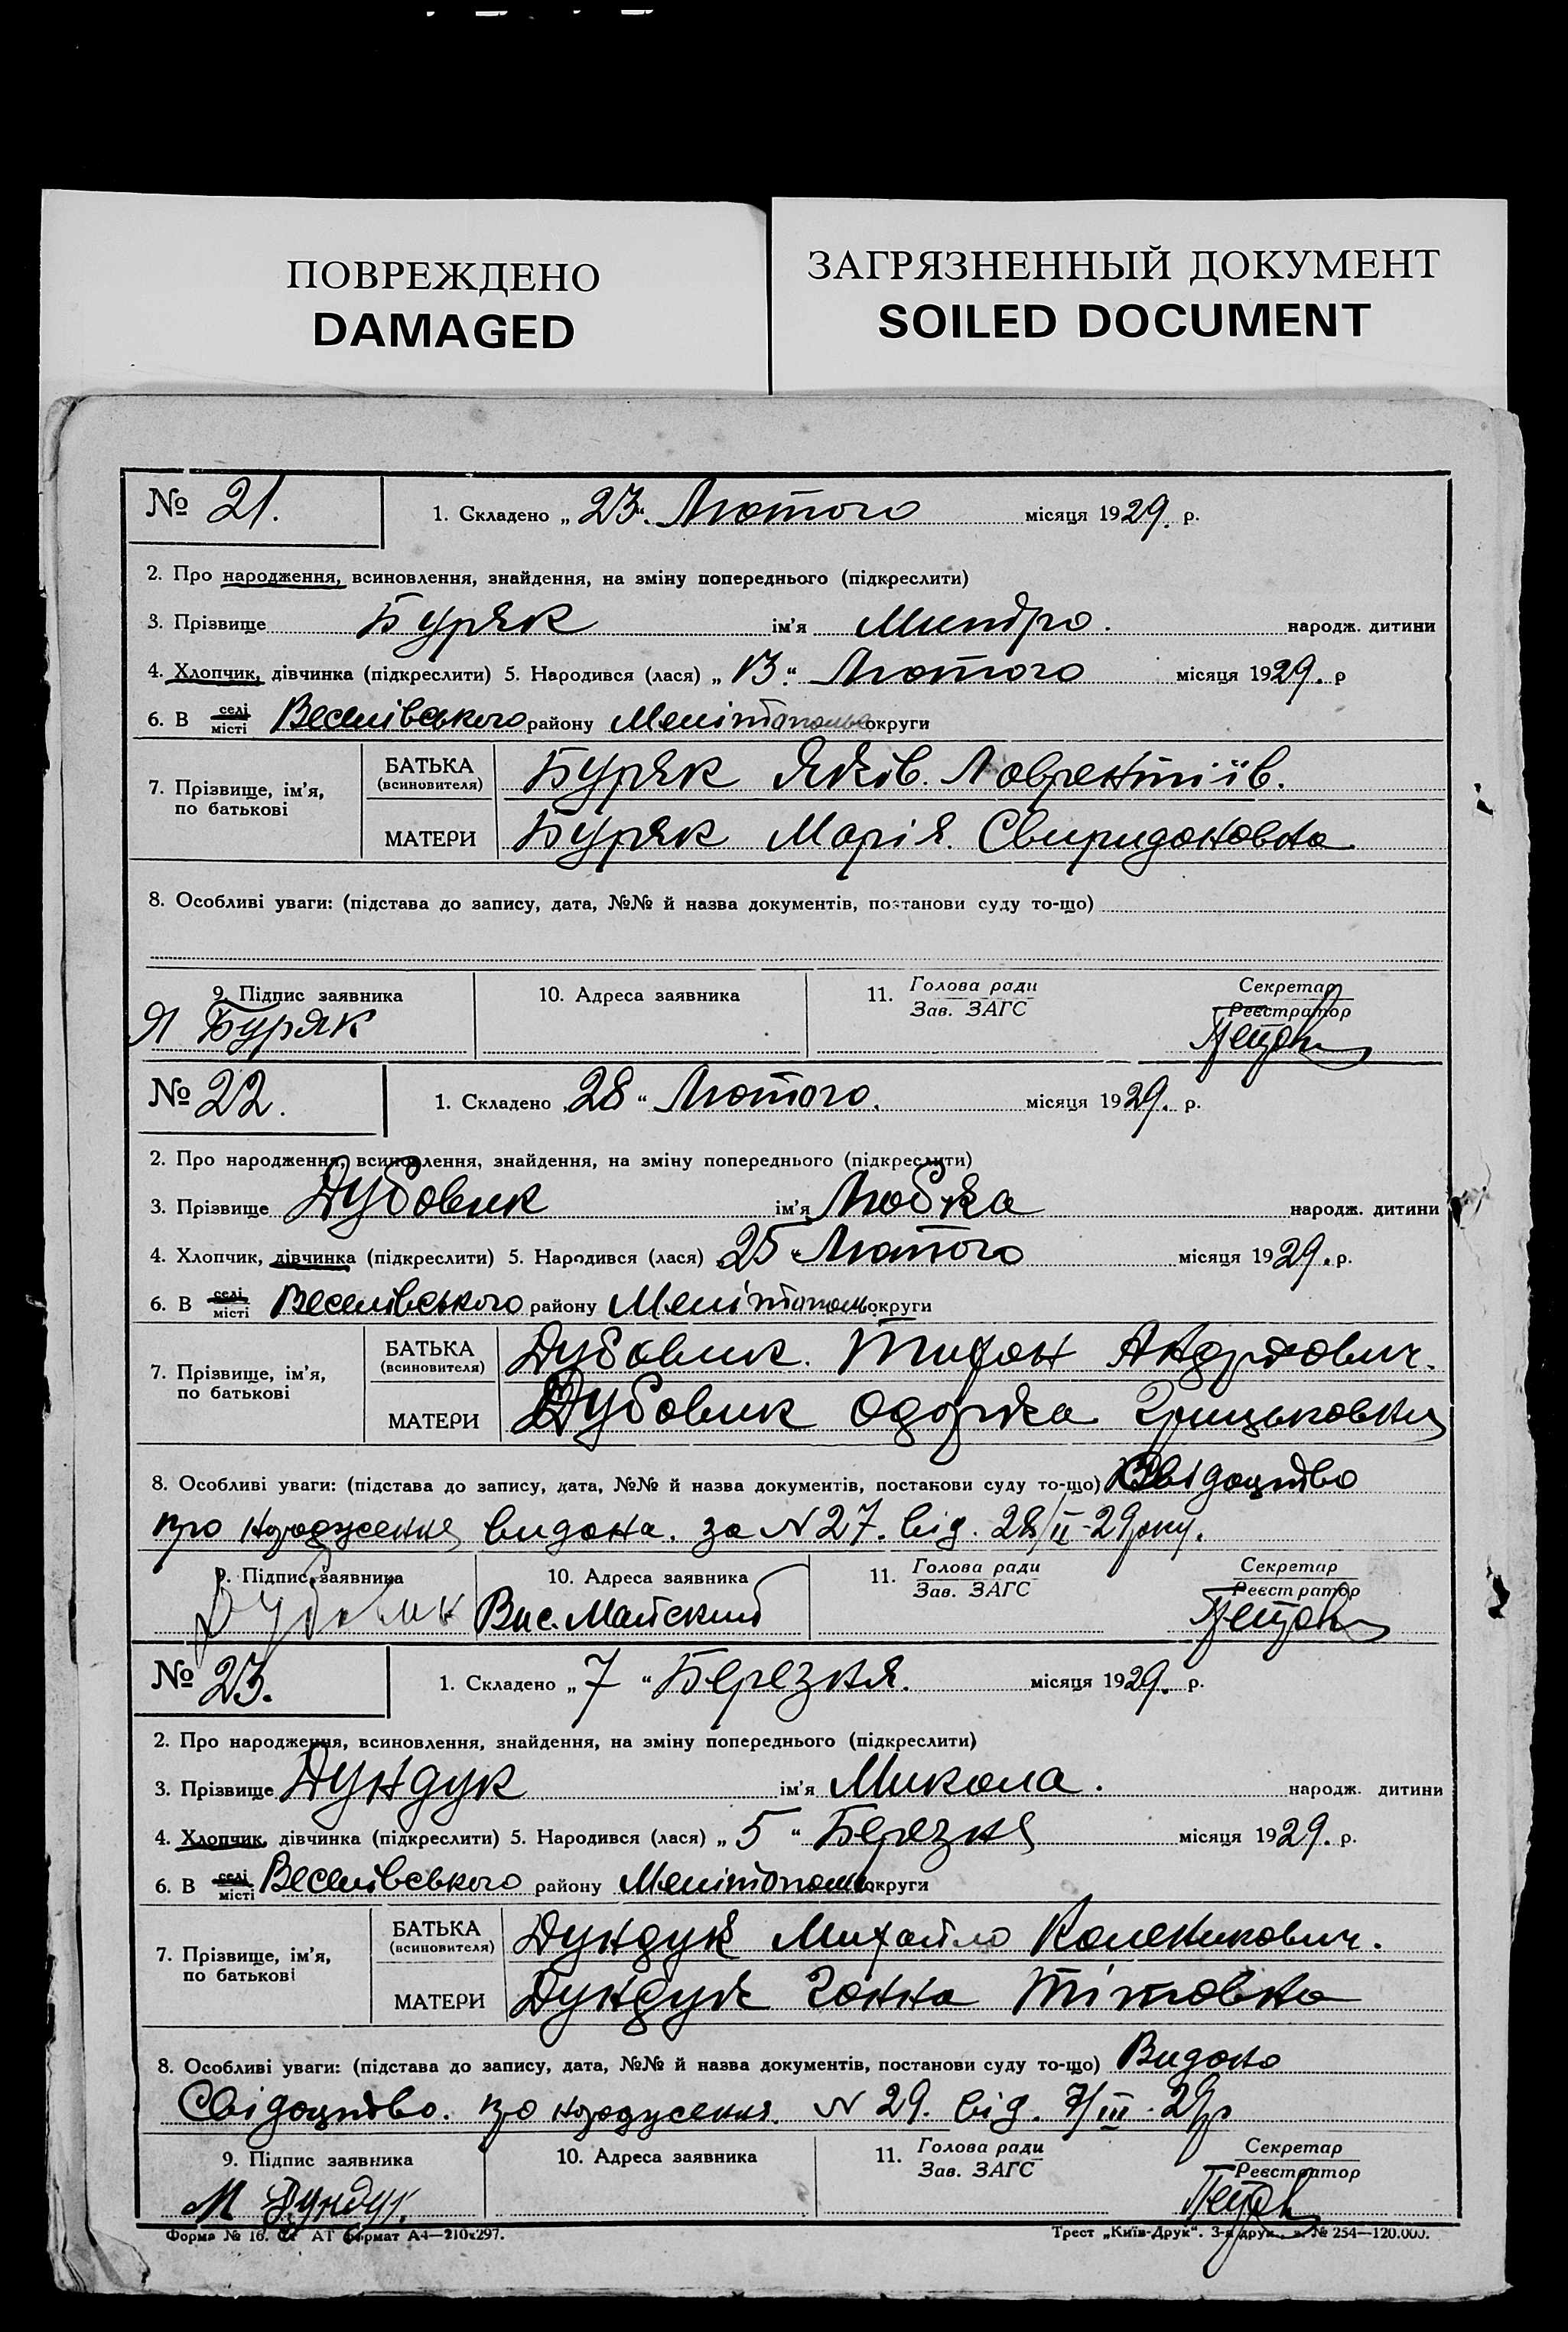 ПОВРЕЖДЕНО
DAMAGED
ЗАГРЯЗНЕННЫЙ ДОКУМЕНТ
SOILED DOCUMENT
№ 21.
1. Складено „ 23 “ Лютого місяця 1929. р.
2. Про народження, всиновлення, знайдення, на зміну попереднього (підкреслити)
3. Прізвище Буряк ім’я Митро. народж. дитини
4. Хлопчик, дівчинка (підкреслити) 5. Народився (лася) „ 13 “ Лютого місяця 1929. р
6. В селі місті Веселівського району Мелітополь округи
7. Прізвище, ім’я, по батькові
БАТЬКА (всиновителя) Буряк Яків. Лаврентіїв.
МАТЕРИ Буряк Марія. Свиридоновна
8. Особливі уваги: (підстава до запису, дата, №№ й назва документів, постанови суду то-що)
9. Підпис заявника
10. Адреса заявника
11. Голова ради Зав. ЗАГС
Секретар Реєстратор
Я Буряк
№ 22.
1. Складено „ 28 “ Лютого. місяця 1929. р.
2. Про народження, всиновлення, знайдення, на зміну попереднього (підкреслити)
3. Прізвище Дубовик ім’я Любка народж. дитини
4. Хлопчик, дівчинка (підкреслити) 5. Народився (лася) 25 “ Лютого місяця 1929. р.
6. В селі місті Веселівського району Мелітополь. округи
7. Прізвище, ім’я, по батькові
БАТЬКА (всиновителя) Дубовик. Тифон Андріович.
МАТЕРИ Дубовик Одарка Грицьковна
8. Особливі уваги: (підстава до запису, дата, №№ й назва документів, постанови суду то-що) Свідоцтво
про народження видана. за N 27. від. 28/II-29 року.
9. Підпис заявника
10. Адреса заявника
11. Голова ради Зав. ЗАГС
Секретар Реєстратор
Дубовик Вис. Майский
№ 23.
1. Складено „ 7 “ Березня. місяця 1929. р.
2. Про народження, всиновлення, знайдення, на зміну попереднього (підкреслити)
3. Прізвище Дундук ім’я Микола. народж. дитини
4. Хлопчик, дівчинка (підкреслити) 5. Народився (лася) „ 5 “ Березня місяця 1929. р.
6. В селі місті Веселівського району Мелітополь. округи
7. Прізвище, ім’я, по батькові
БАТЬКА (всиновителя) Дундук Михайло Каленикович.
МАТЕРИ Дундук Ганна Тітовна
8. Особливі уваги: (підстава до запису, дата, №№ й назва документів, постанови суду то-що) Видано
Свідоцтво. про народження. N 29. від. 7/III-29р
9. Підпис заявника
10. Адреса заявника
11. Голова ради Зав. ЗАГС
Секретар Реєстратор
М Дундук.
Форма № 16. АТ формат А4—210x297.
Трест „Київ-Друк“. 3-я друк. № 254—120.000.